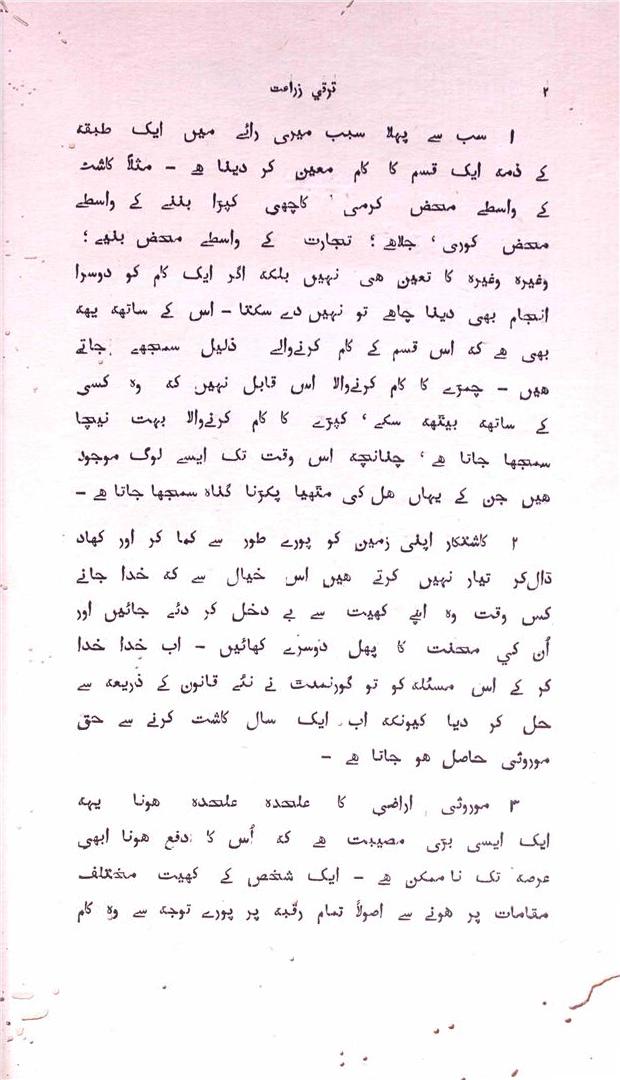 ۲ ترقیِ زراعت
۱ سب سے پہلا سبب میری رائے میں ایک طبقہ
کے ذمہ ایک قسم کا کام معین کر دینا ھے - مثلاً کاشت
کے واسطے محض کرمی ‘ کاچھی کپڑا بننے کے واسطے
محض کوری ‘ جلاھے ؛ تجارت کے واسطے محض بنیے ؛
وغیرہ وغیرہ کا تعین ھی نہیں بلکہ اگر ایک کام کو دوسرا
انجام بھی دینا چاھے تو نہیں دے سکتا - اس کے ساتھہ یھہ
بھی ھے کہ اس قسم کے کام کرنے‌والے ذلیل سمجھے جاتے
ھیں - چمڑے کا کام کرنے‌والا اس قابل نہیں کہ وہ کسی
کے ساتھہ بیٹھہ سکے ‘ کپڑے کا کام کرنے‌والا بہت نیچا
سمجھا جاتا ھے ‘ چنانچہ اس وقت تک ایسے لوگ موجود
ھیں جن کے یہاں ھل کی متھیا پکڑنا گناہ سمجھا جاتا ھے -
۲ کاشتکار اپنی زمین کو پورے طور سے کما کر اور کھاد
ڈال‌کر تیار نہیں کرتے ھیں اس خیال سے کہ خدا جانے
کس وقت وہ اپنے کھیت سے بے دخل کر دئے جائیں اور
اُن کی محنت کا پھل دوسرے کھائیں - اب خدا خدا
کر کے اس مسئلہ کو تو گورنمنٹ نے نئے قانون کے ذریعہ سے
حل کر دیا کیونکہ اب ایک سال کاشت کرنے سے حق
موروثی حاصل ھو جاتا ھے -
۳ موروثی اراضی کا علحدہ علحدہ ھونا یہہ
ایک ایسی بڑی مصیبت ھے کہ اُس کا دفع ھونا ابھی
عرصہ تک نا ممکن ھے - ایک شخص کے کھیت مختلف
مقامات پر ھونے سے اصولاً تمام رقبہ پر پورے توجہ سے وہ کام